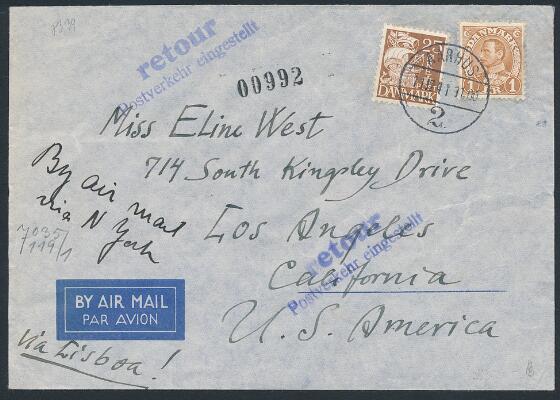 retour
Postverkehr eingestellt
00992
25
DANMARK
DANMARK
1
AARHUS
2
Miss Eline West
714 South Kingsley Drive
Los Angeles
California
U.S. America
By air mail
via N York
retour
Postverkehr eingestellt
7035
7119/1
BY AIR MAIL
PAR AVION
via Lisboa!